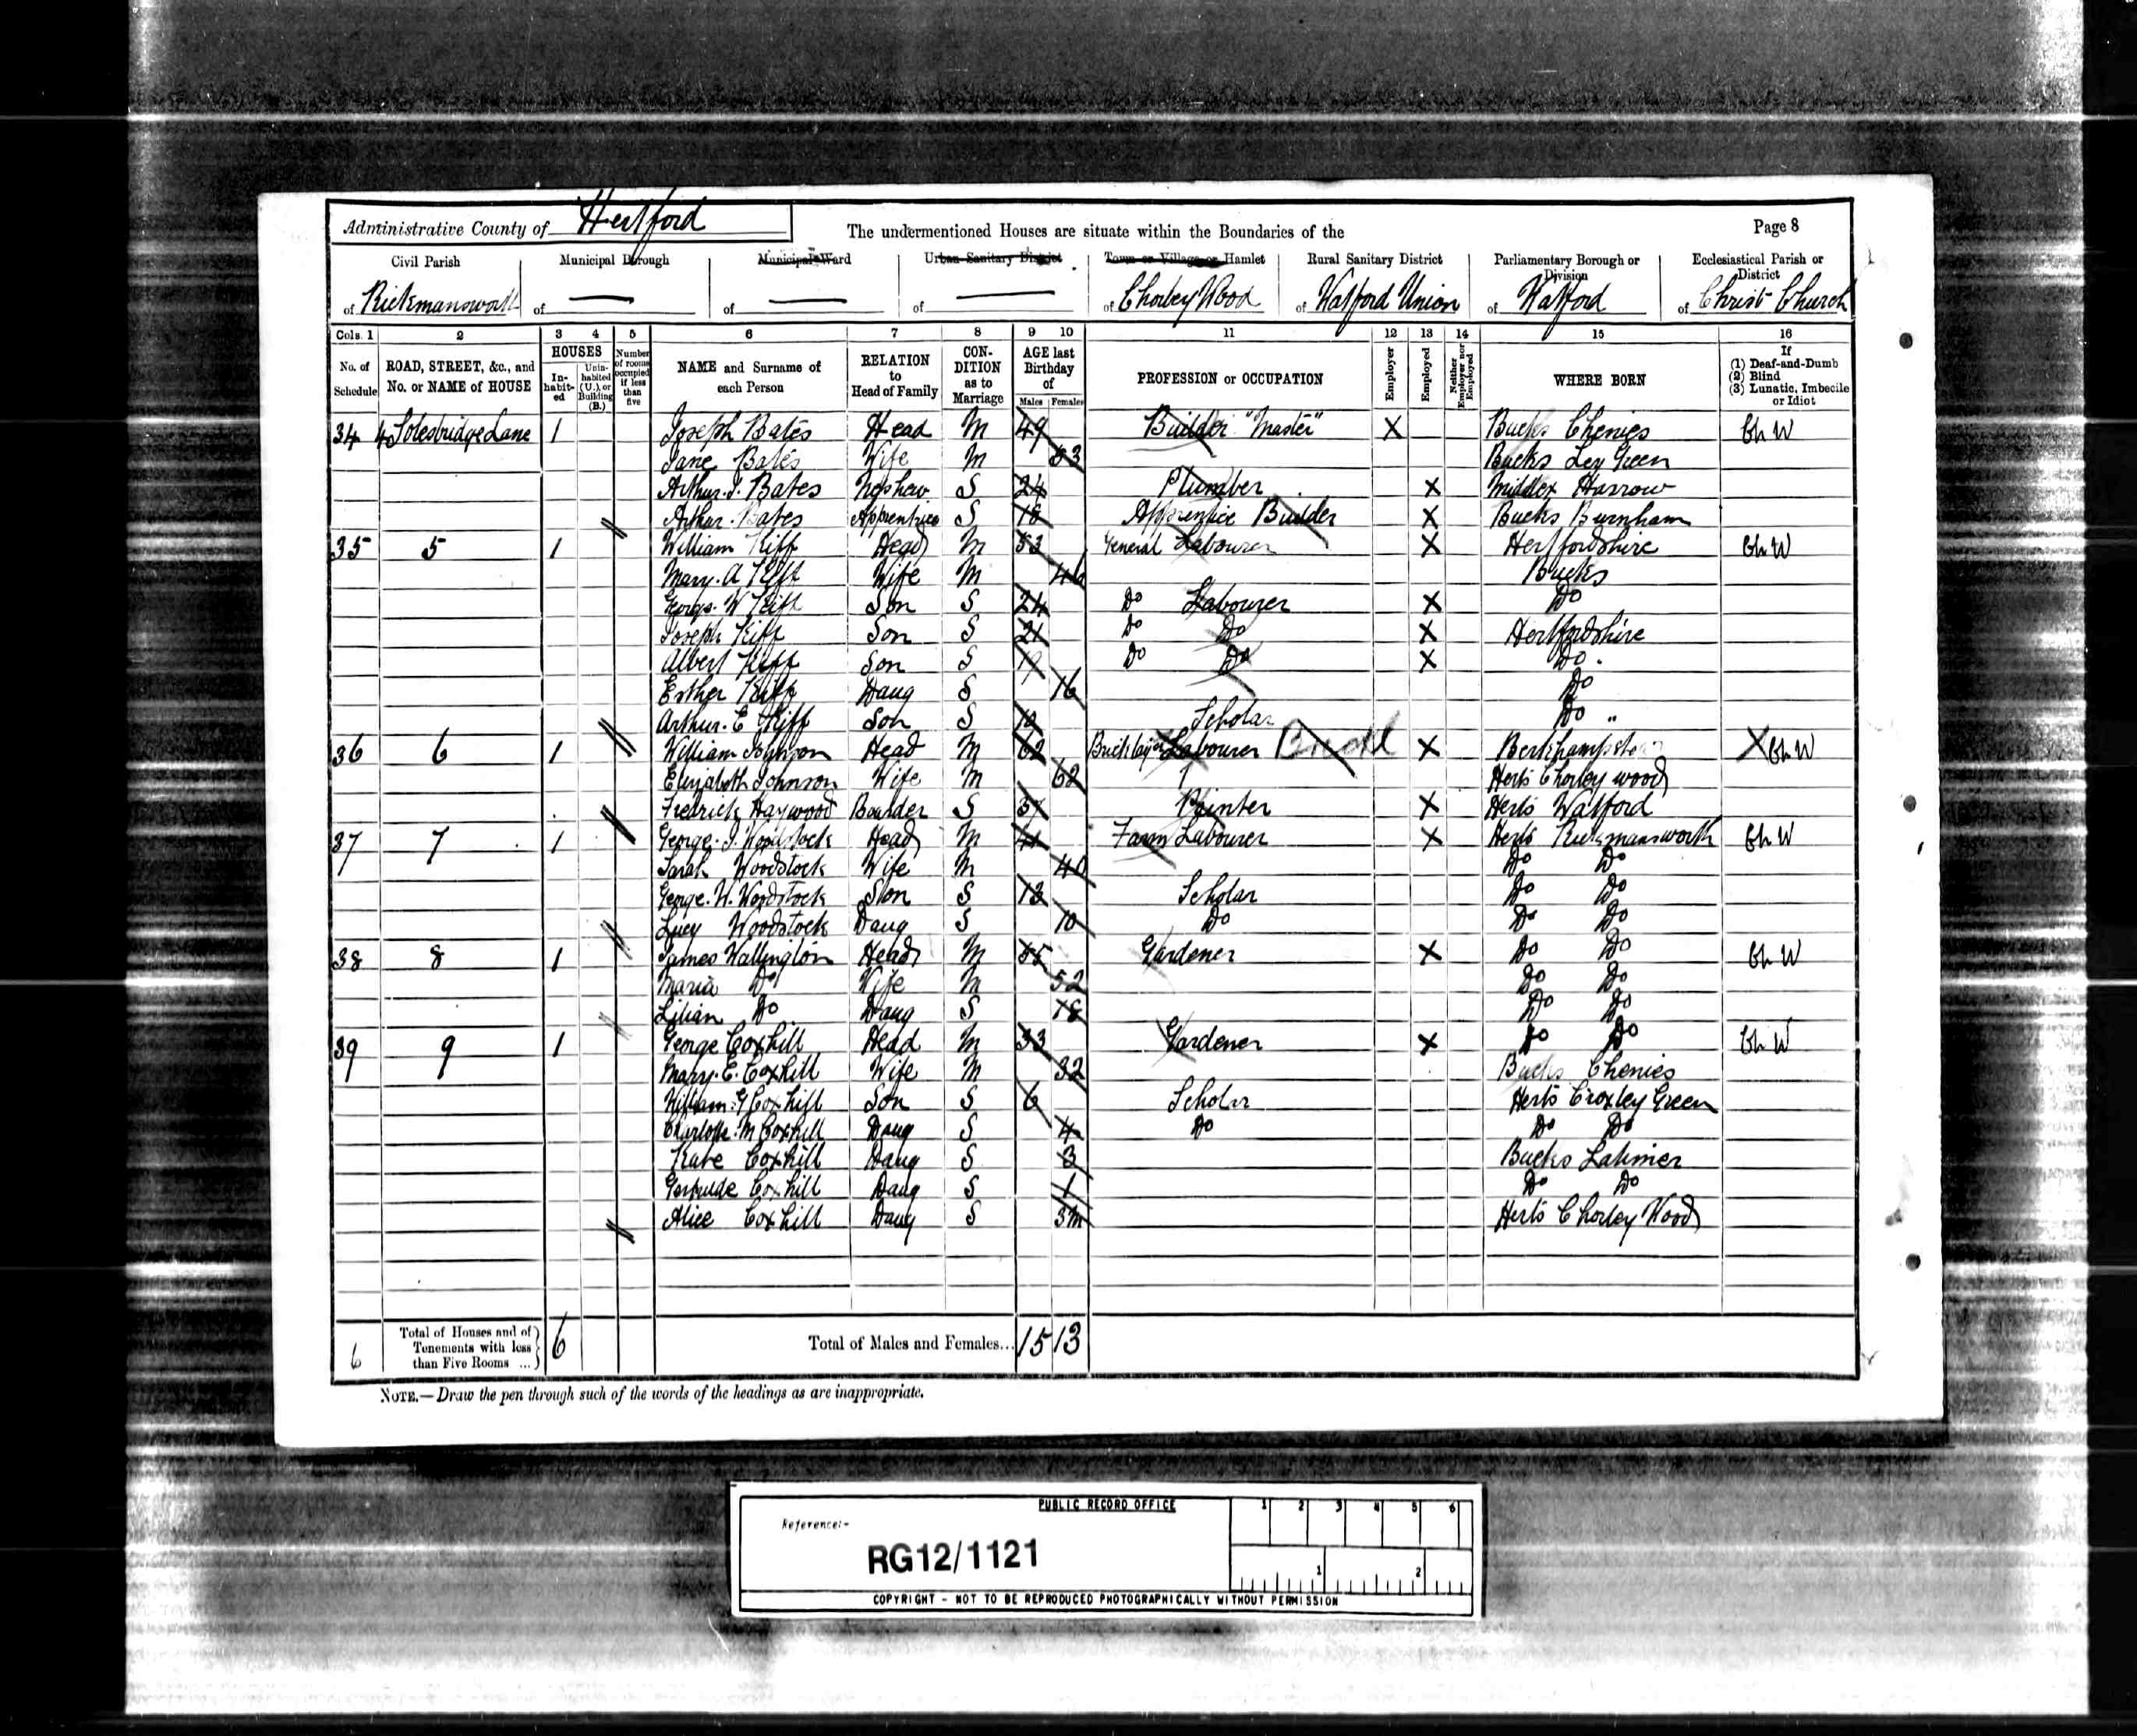 Administrative County of Hertford
The undermentioned Houses are situate within the Boundaries of the
Page 8
Civil Parish of Rickmansworth
Municipal Borough of —
Municipal Ward of —
Urban Sanitary District of —
Town or Village or Hamlet of Chorley Wood
Rural Sanitary District of Watford Union
Parliamentary Borough or Division of Watford
Ecclesiastical Parish or District of Christ Church
Cols. 1 2 3 4 5 6 7 8 9 10 11 12 13 14 15 16
No. of Schedule
ROAD, STREET, &c., and No. or NAME of HOUSE
HOUSES
Inhabited
Uninhabited (U.), or Building (B.)
Number of rooms occupied if less than five
NAME and Surname of each Person
RELATION to Head of Family
CONDITION as to Marriage
AGE last Birthday of
Males Females
PROFESSION or OCCUPATION
Employer
Employed
Neither Employer nor Employed
WHERE BORN
If (1) Deaf-and-Dumb (2) Blind (3) Lunatic, Imbecile or Idiot
34 4 Solesbridge Lane 1 Joseph Bates Head M 49 Builder "Master" X Bucks Chenies Ch W
Jane Bates Wife M 53 Bucks Ley Green
Arthur. J. Bates Nephew S 24 Plumber X Middlex Harrow
Arthur. Bates Apprentice S 18 Apprentice Builder X Bucks Burnham
35 5 1 William Kiff Head M 53 General Labourer X Hertfordshire Ch W
Mary. A Kiff Wife M 46 Bucks
George. W Kiff Son S 24 Do Labourer X Do
Joseph Kiff Son S 21 Do Do X Hertfordshire
Albert Kiff Son S Do Do X Do.
Esther Kiff Daug S 16 Do
Arthur. E Kiff Son S Scholar Do "
36 6 1 William Johnson Head M 62 Bricklayer Labourer X X Ch W
Elizabeth Johnson Wife M 62 Herts Chorley wood
Fredrick Haywood Boarder S Painter X Herts Watford
37 7 1 George. J. Woodstock Head M Farm Labourer X Herts Rickmansworth Ch W
Sarah Woodstock Wife M 40 Do Do
George. W. Woodstock Son S 13 Scholar Do Do
Lucy Woodstock Daug S 10 Do Do Do
38 8 1 James Wallington Head M Gardener X Do Do Ch W
Maria Do Wife M 52 Do Do
Lilian Do Daug S 18 Do Do
39 9 1 George Coxhill Head M 33 Gardener X Do Do Ch W
Mary. E. Coxhill Wife M 32 Bucks Chenies
William. G Coxhill Son S 6 Scholar Herts Croxley Green
Charlotte. M Coxhill Daug S 4 Do Do Do
Kate Coxhill Daug S 3 Bucks Latimer
Gertrude Coxhill Daug S 1 Do Do
Alice Coxhill Daug S 3m Herts Chorley Wood
6 Total of Houses and of Tenements with less than Five Rooms ... 6
Total of Males and Females... 15 13
NOTE.—Draw the pen through such of the words of the headings as are inappropriate.
PUBLIC RECORD OFFICE
1 2 3 4 5 6
Reference:-
RG12/1121
1 2
COPYRIGHT - NOT TO BE REPRODUCED PHOTOGRAPHICALLY WITHOUT PERMISSION